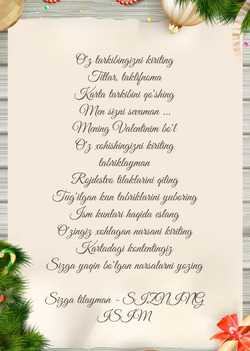 O'z tarkibingizni kiriting
Titlar, taklifnoma
Karta tarkibini qo'shing
Men sizni sevaman ...
Mening Valentinim bo'l
O'z xohishingizni kiriting
tabriklayman
Rojdestvo tilaklarini qiling
Tug'ilgan kun tabriklarini yuboring
Ism kunlari haqida eslang
O'zingiz xohlagan narsani kiriting
Kartadagi kontentingiz
Sizga yaqin bo'lgan narsalarni yozing
Sizga tilayman - SIZNING
ISIM